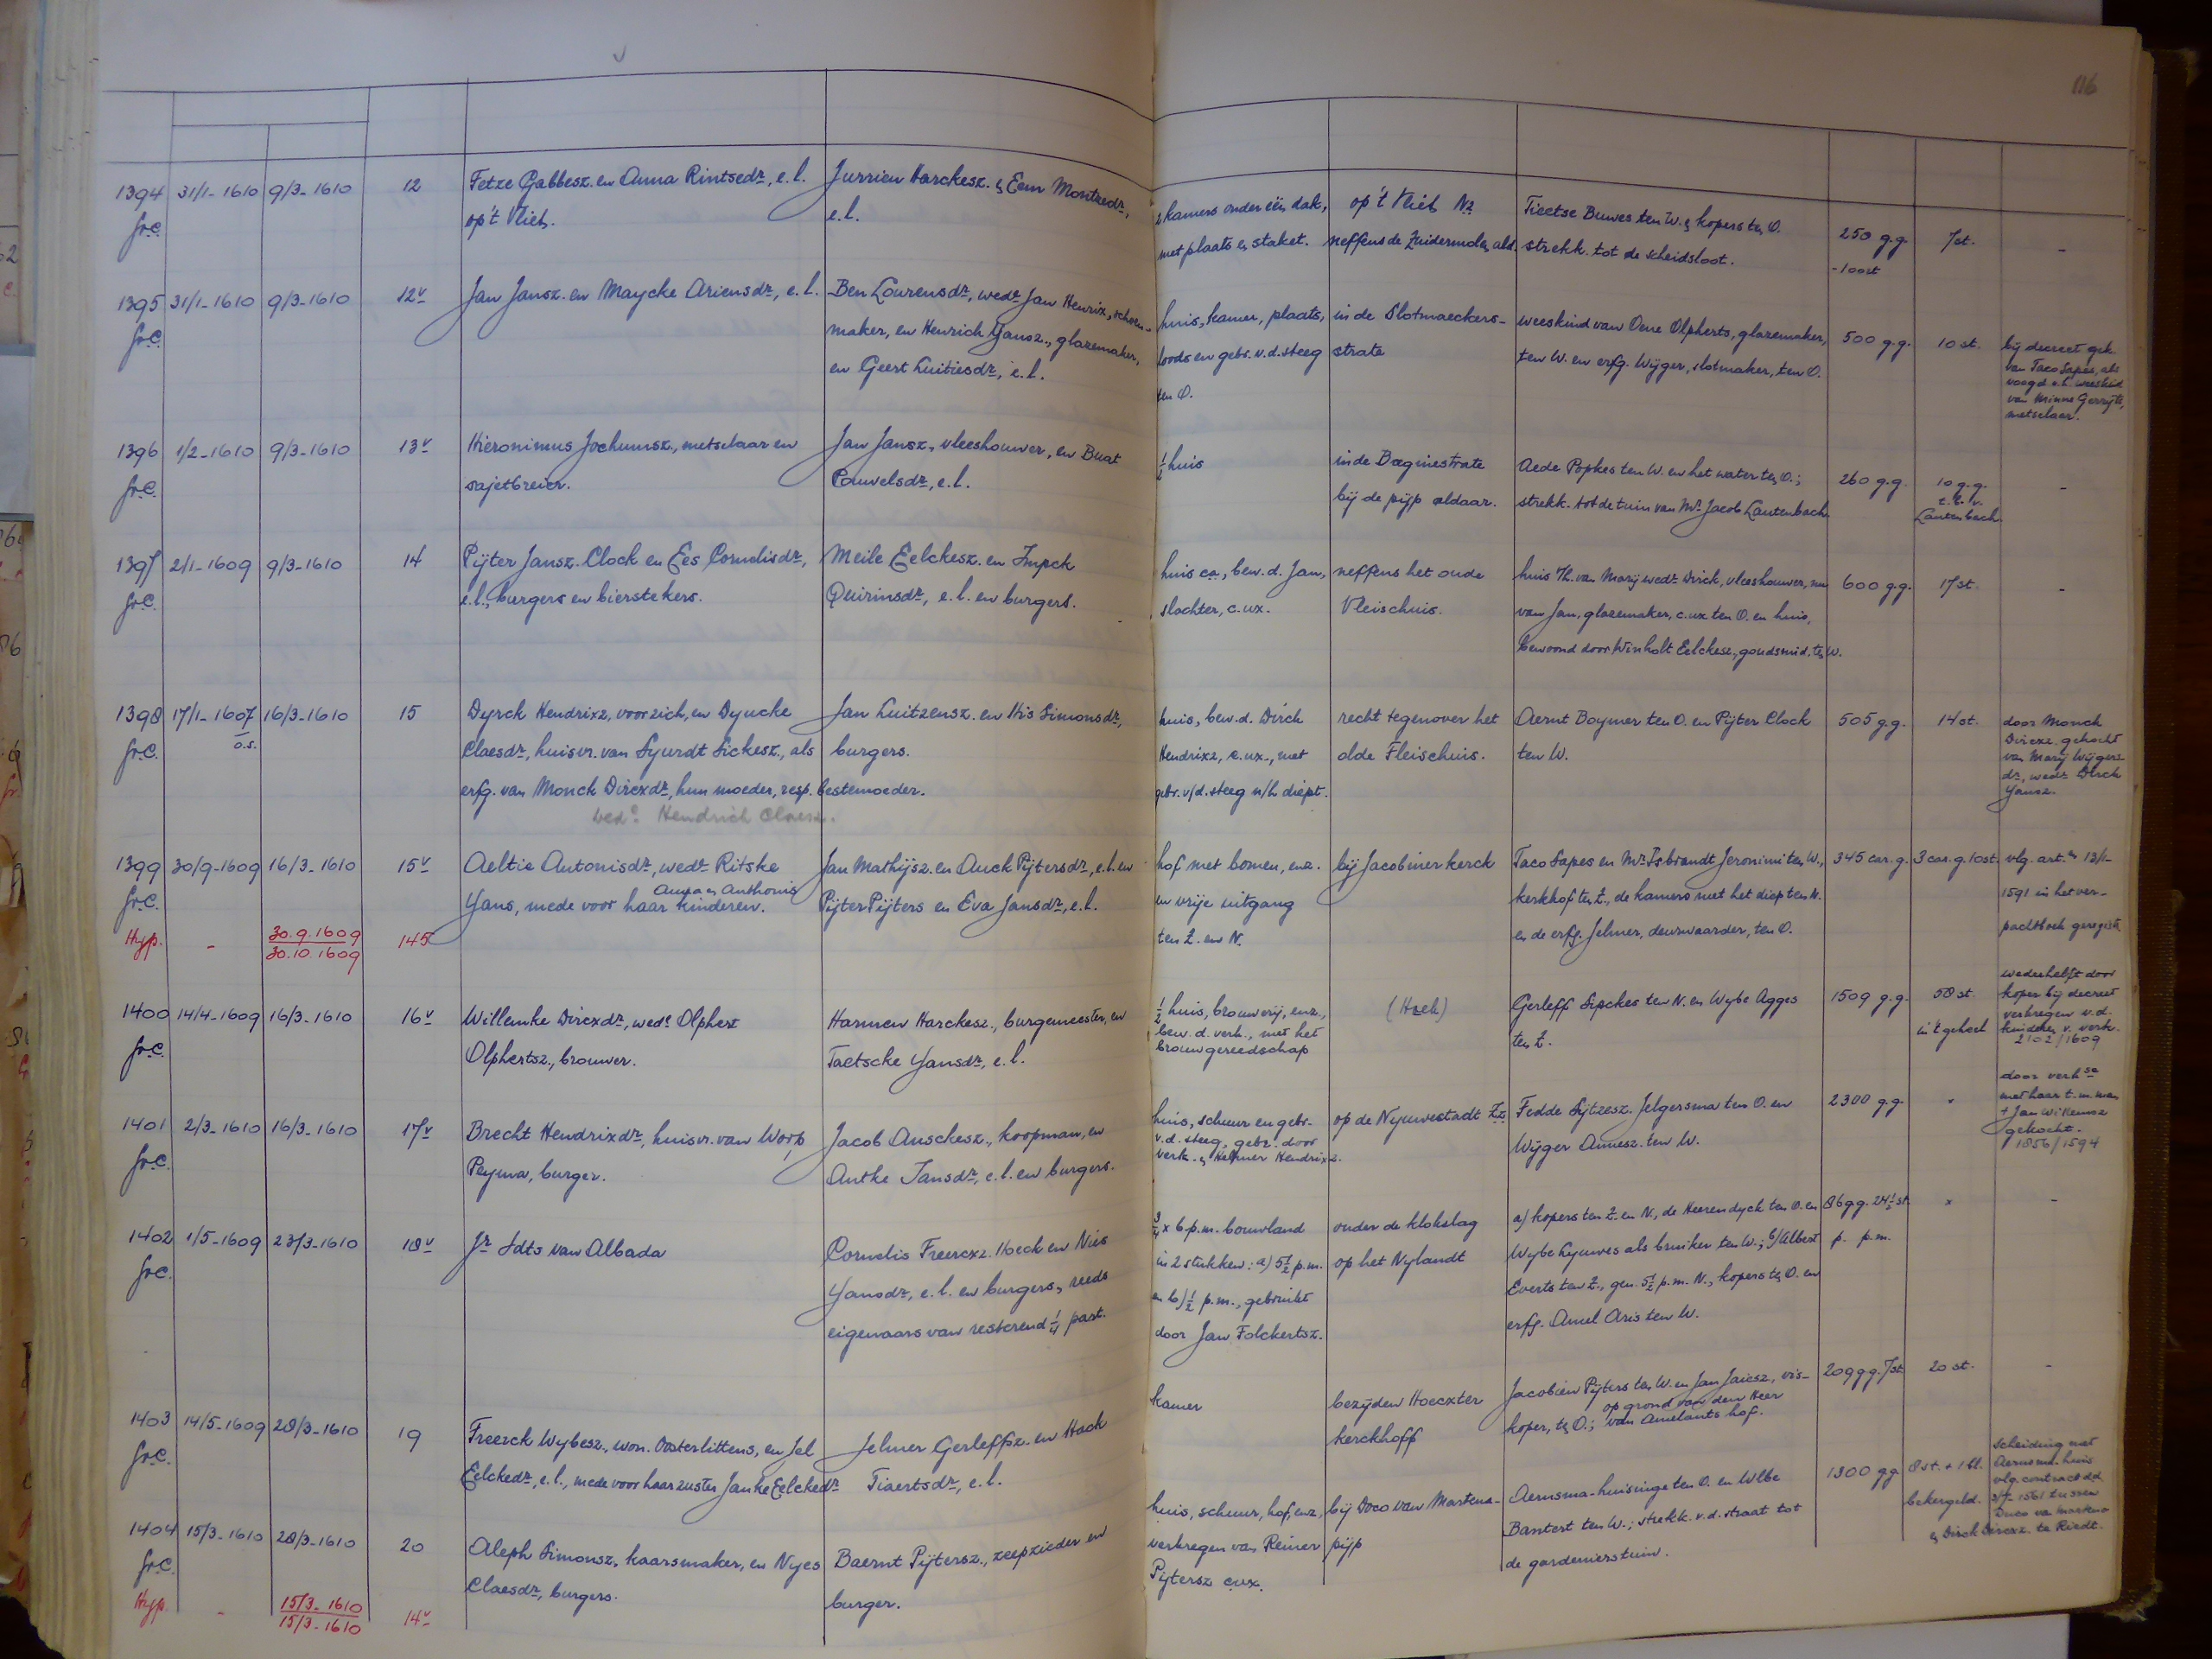 116
1394 31/1-1610 9/3-1610 12 Fetze Gabbesz. en Anna Rintsedr, e.l. Jurrien Harckesz. & Eem Montzedr,
fr.C. op't Vliet. e.l.
2 kamers onder één dak, op't Vliet Nz Tieetse Buwes ten W. & kopers ten O. 250 g.g. 7 st. -
met plaats en staket. neffens de Zuidermolen ald. strekk. tot de scheidsloot. -100st
1395 31/1-1610 9/3-1610 12v Jan Jansz. en Maycke Ariensdr, e.l. Ben Lourensdr, wedr Jan Henrix, schoen-
fr.C. maker, en Henrich Yansz., glazemaker,
en Geert Luitiesdr, e.l.
huis, kamer, plaats, in de Slotmaeckers- weeskind van Oene Olpherts, glazemaker, 500 g.g. 10 st. bij decreet gek.
loods en gebr. v.d. steeg strate ten W. en erfg. Wijger, slotmaker, ten O. van Taco Sapes, als
ten O. voogd o.h. weeskind
van Minne Gerrijts,
metselaar.
1396 1/2-1610 9/3-1610 13v Hieronimus Jochumsz., metselaar en Jan Jansz., vleeshouwer, en Buat
fr.C. sajetbreier. Pauvelsdr, e.l.
½ huis in de Baeginestrate Aede Popkes ten W. en het water ten O.; 260 g.g. 10 g.g. -
bij de pijp aldaar. strekk. tot de tuin van Mr Jacob Lautenbach. t.b.v.
Lautenbach.
1397 2/1-1609 9/3-1610 14 Pijter Jansz. Clock en Ees Cornelisdr, Meile Eelckesz. en Impck
fr.C. e.l., burgers en bierstekers. Quirinsdr, e.l. en burgers.
huis ca., bew. d. Jan, neffens het oude huis Th. van Marij wedr Dirck, vleeshouwer, nu 600 g.g. 17 st. -
slachter, c.ux. Vleischuis. van Jan, glazemaker, c.ux ten O. en huis,
bewoond door Winholt Eelckesz., goudsmid, ten W.
1398 17/1-1607 16/3-1610 15 Dyrck Hendrixz, voor zich, en Dyucke Jan Luitzensz. en His Simonsdr,
fr.C. o.s. Claesdr, huisvr. van Sjurdt Sickesz., als burgers.
erfg. van Monck Dircxdr, hun moeder, resp. bestemoeder.
wedr Hendrick Claesz.
huis, bew. d. Dirck recht tegenover het Aernt Boymer ten O. en Pijter Clock 505 g.g. 14 st. door Monck
Hendrixz, c.ux., met olde Fleischuis. ten W. Dircxz. gekocht
gebr. v/d. steeg n/h diept. van Marij Wijgers-
dr, wedr Dirck
Yansz.
1399 30/9-1609 16/3-1610 15v Aeltie Antonisdr, wedr Ritske Jan Mathijsz. en Auck Pijtersdr, e.l. en
fr.C. Yans, mede voor haar kinderen. Anna en Anthonis Pijter Pijters en Eva Jansdr, e.l.
Hyp. - 30.9.1609 145
30.10.1609
hof met bomen, enz. bij Jacobiner kerck Taco Sapes en Mr Isbrandt Jeronimi ten W., 345 car.g. 3 car.g. 10st. vlg. art. 13/1-
en vrije uitgang kerkhof ten Z., de kamers met het diep ten N. 1591 in het ver-
ten Z. en N. en de erfg. Jelmer, deurwaarder, ten O. pachtboek geregistr.
1400 14/4-1609 16/3-1610 16v Willemke Dircxdr, wedr Olphert Harmen Harckesz., burgemeester, en
fr.C. Olphertsz., brouwer. Taetscke Yansdr, e.l.
½ huis, brouwerij, enz., (Hoek) Gerleff Sipckes ten N. en Wybe Agges 1509 g.g. 58 st. wederhelft door
bew. d. verk., met het ten Z. in 't geheel koper bij decreet
brouwgereedschap verkregen v.d.
kinderen v. verk.
2102/1609
1401 2/3-1610 16/3-1610 17v Brecht Hendrixdr, huisvr. van Worp Jacob Anschesz., koopman, en
fr.C. Peyma, burger. Antke Jansdr, e.l. en burgers.
huis, schuur en gebr. op de Nyuwestadt Zz Fedde Sytzesz. Jelgersma ten O. en 2300 g.g. x door verkse
v.d. steeg, gebr. door Wijger Annesz. ten W. met haar t.m. man
verk. & Helmer Hendrixz. + Jan Willemsz
gekocht.
1856/1594
1402 1/5-1609 23/3-1610 18v Jr Idts van Albada Cornelis Freercxz. Hoeck en Nies
fr.C. Yansdr, e.l. en burgers, reeds
eigenaars van resterend ¼ part.
¾ x 6 p.m. bouwland onder de klokslag a) kopers ten Z. en N., de Heerendyck ten O. en 86 g.g. 24½ st. x -
in 2 stukken: a) 5½ p.m. op het Nylandt Wybe Lyuwes als bruiker ten W.; b) Albert p. p.m.
en b) ½ p.m., gebruikt Everts ten Z., gen. 5½ p.m. N., kopers ten O. en
door Jan Folckertsz. erfg. Amel Aris ten W.
1403 14/5-1609 28/3-1610 19 Freerck Wybesz., won. Oosterlittens, en Jel Jelmer Gerleffsz. en Hack
fr.C. Eelckedr, e.l., mede voor haar zuster Janke Eelckedr Tiaertsdr, e.l.
kamer bezijden Hoecxter Jacobien Pijters ten W. en Jan Jaiesz, vis- 209 g.g. 7 st. 20 st. -
kerckhoff koper, ten O.; op grond van den Heer
van Amelants hof.
1404 15/3-1610 28/3-1610 20 Aleph Simonsz., kaarsmaker, en Nyes Baernt Pijtersz., zeepzieder en
fr.C. Claesdr, burgers. burger.
Hyp. - 15/3-1610 14v
15/3-1610
huis, schuur, hof, enz, bij Doco van Martena- Aernsma-huisinge ten O. en Wlbe 1300 g.g. 8 st. + 1 bl. scheiding met
verkregen van Reiner pijp Bantert ten W.; strekk. v.d. straat tot bekergeld. Aernsma-huis
Pijtersz c.ux. de gardenierstuin. vlg. contract dd
1561 tussen
Duco van Martena
& Dirck Dircxz. te Riedt.